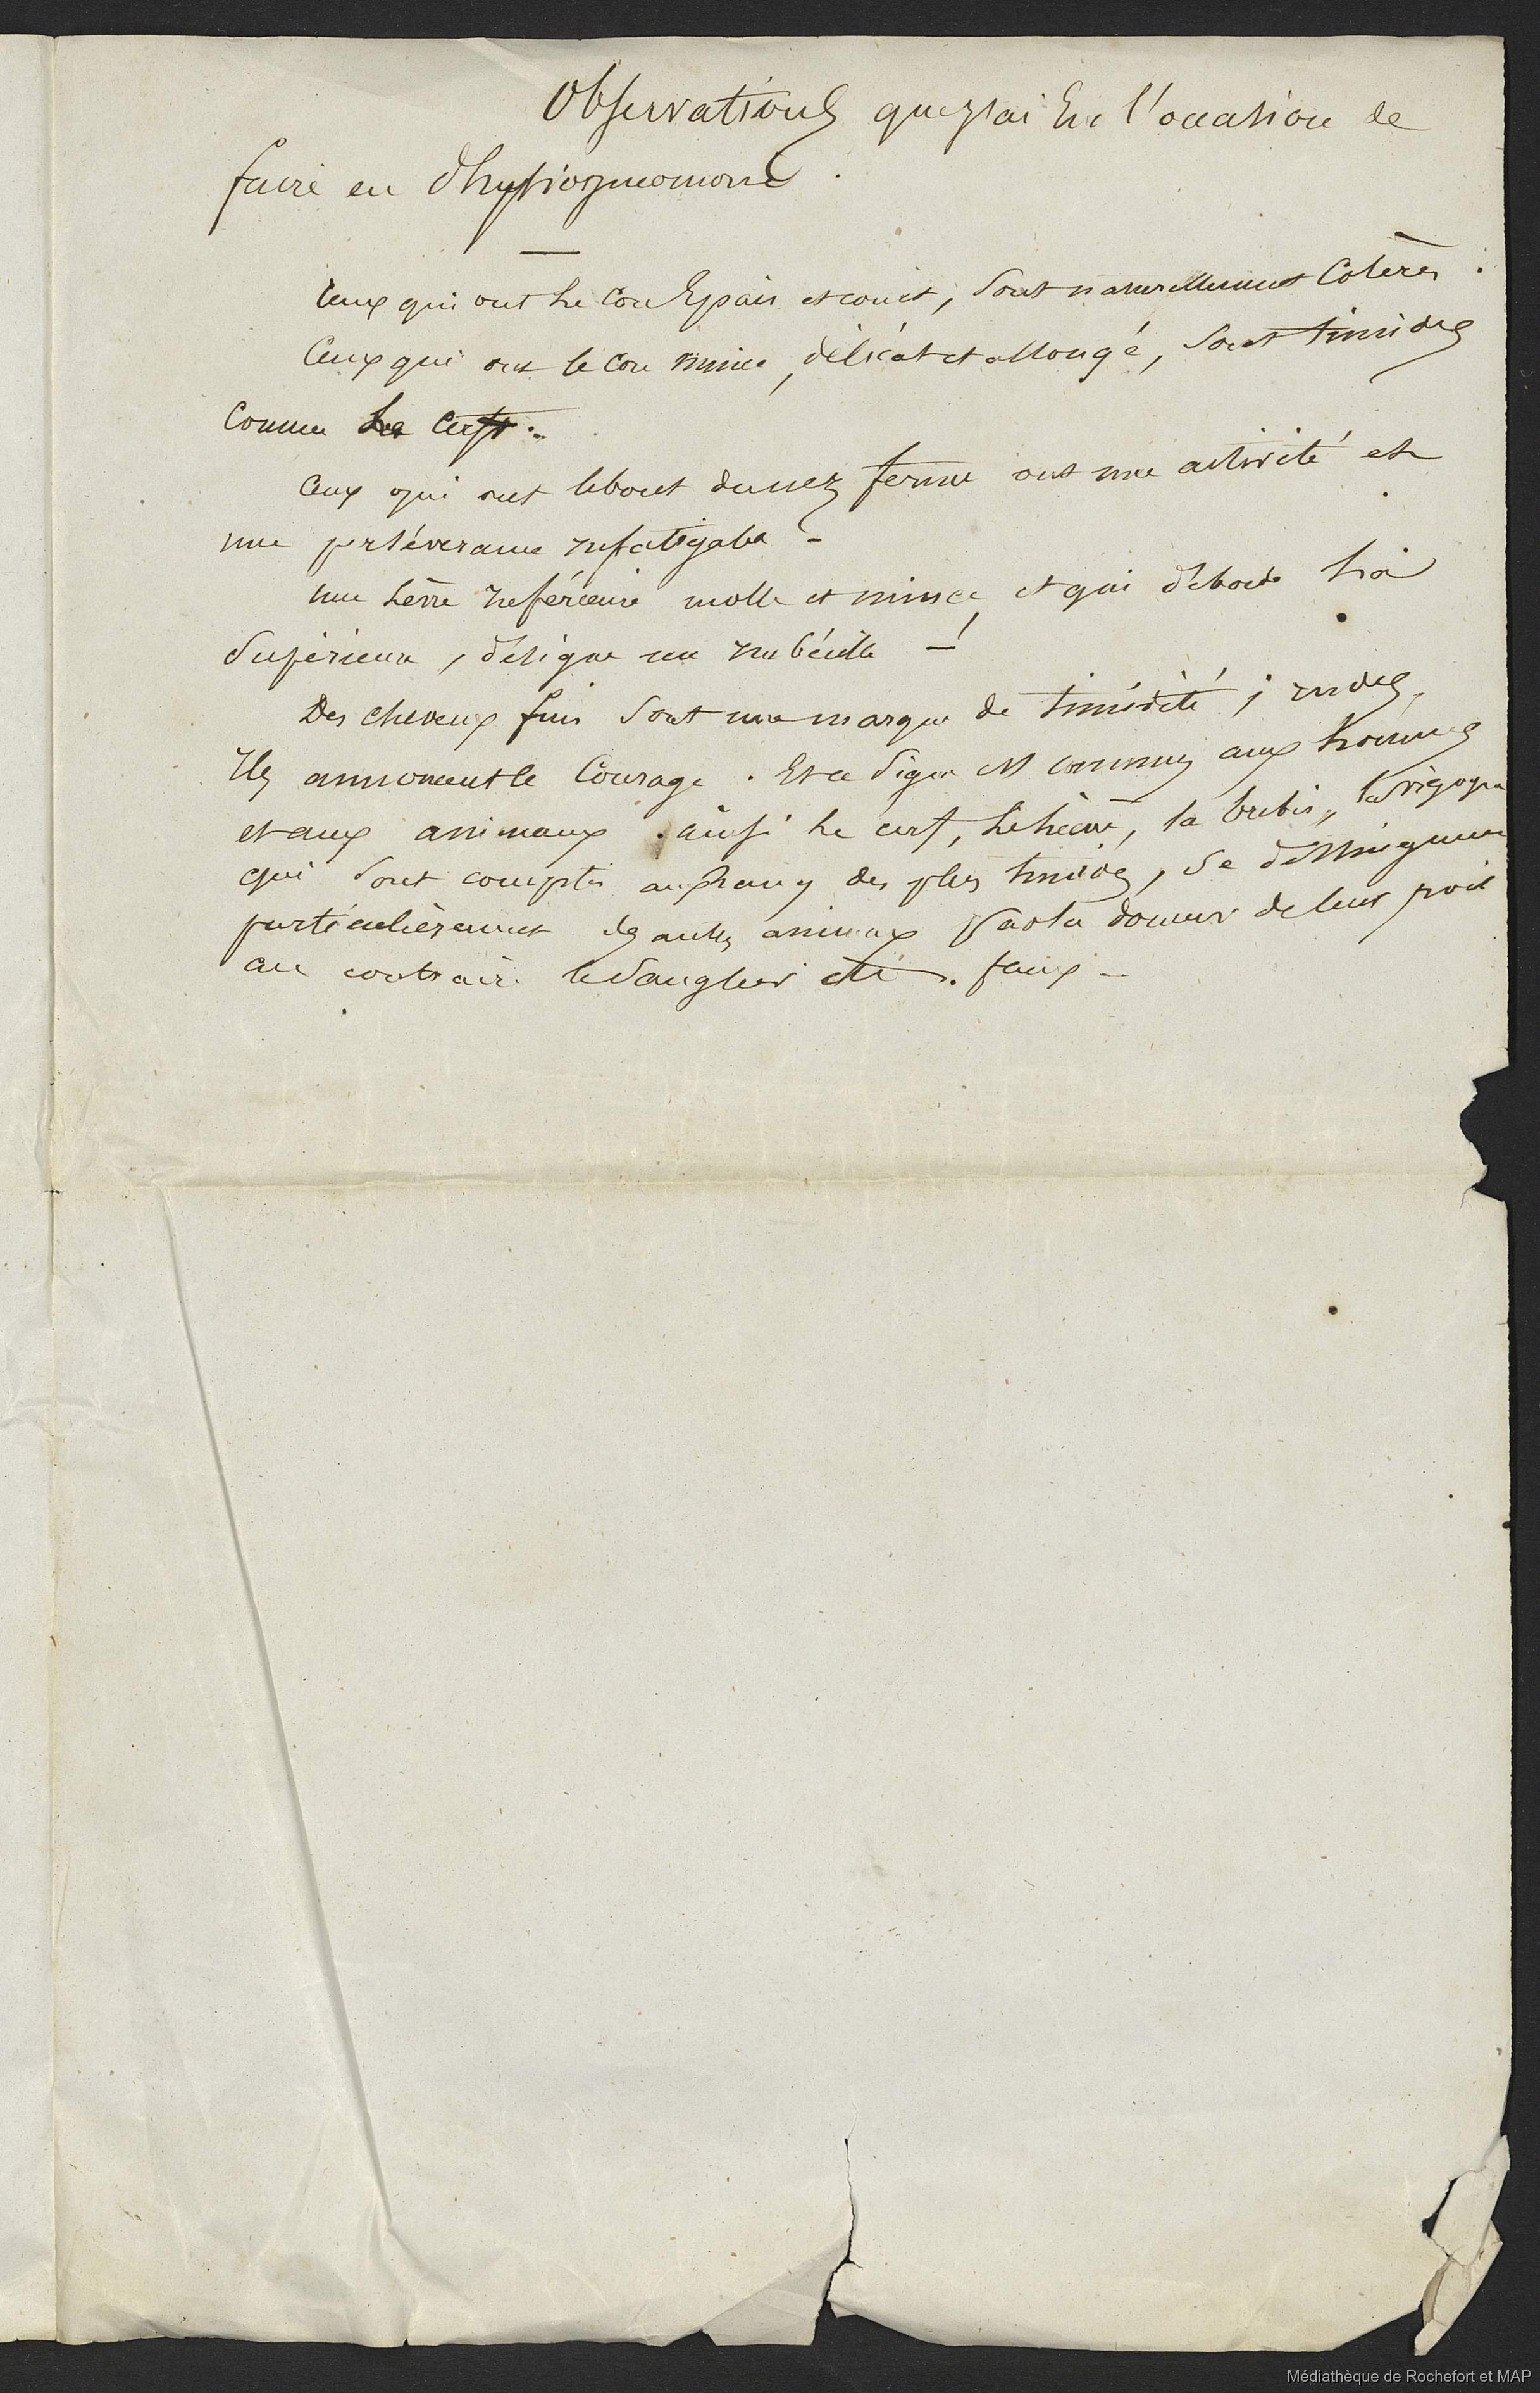 Observations que j'ai Eu l'occasion de
faire en Physiognomonie.
Ceux qui ont Le Cou Epais et court, sont naturellement Colères.
Ceux qui ont le cou mince, délicat et allongé, sont timides
Comme Le Cerf.
Ceux qui ont le bout du nez ferme ont une activité et
une persévérance Infatigable -
une Lèvre Inférieure molle et mince, et qui déborde La
Supérieure, désigne un Imbécille - !
Des cheveux fins sont une marque de timidité ; rudes,
Ils annoncent le Courage. Et ce signe est commun aux hommes
et aux animaux. ainsi Le cerf, Le Lièvre, la brebis, la vigogne
qui sont comptés au rang des plus timides, se distinguent
particulièrement des autres animaux par la douceur de leur poil
au contraire le Sanglier etc. faux -
Médiathèque de Rochefort et MAP